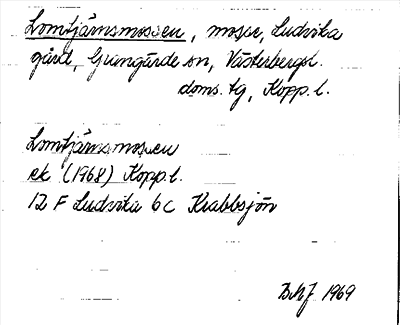 Lomtjärnsmossen, mosse, Ludvika
gård, Grangärde sn, Västerbergsl.
doms. tg, Kopp. l.
Lomtjärnsmossen
ek (1968) Kopp. l.
12 F Ludvika 6c Krabbsjön
1969